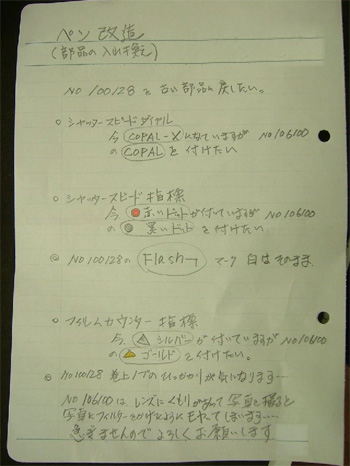 ペン 改造
(部品の入れ換え)
NO 100128 を 古い部品に戻したい。
○ シャッタースピードダイヤル
今 COPAL-X になっていますが NO 106100
の COPAL を 付けたい
○ シャッタースピード 指標
今 赤いドットが付いていますが NO 106100
の 黒いドット を 付けたい
◎ NO 100128の Flash→ マーク 白は そのまま
○ フィルムカウンター 指標
今 シルバー が付いているが NO 106100
の ゴールド を付けたい。
◎ NO 100128 巻上ノブの ひっかかりが気になります…
NO 106100 は、レンズに くもりがあって 写真を撮ると
写真にフィルターをかけたように モヤってしまいます….
急ぎませんので よろしく お願いします